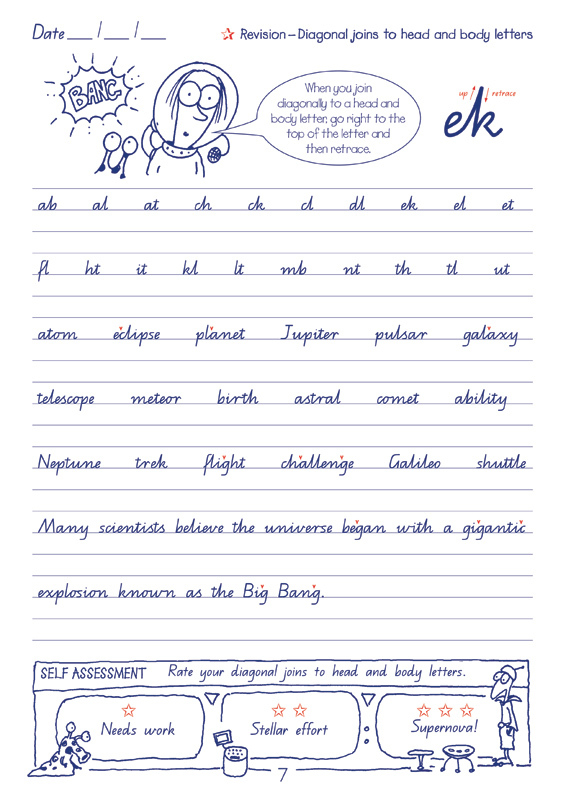 Date ___ / ___ / ___
☆ Revision – Diagonal joins to head and body letters
BANG
When you join
diagonally to a head and
body letter, go right to the
top of the letter and
then retrace.
up retrace
ek
ab al at ch ck cl dl ek el et
fl ht it kl lt mb nt th tl ut
atom eclipse planet Jupiter pulsar galaxy
telescope meteor birth astral comet ability
Neptune trek flight challenge Galileo shuttle
Many scientists believe the universe began with a gigantic
explosion known as the Big Bang.
SELF ASSESSMENT Rate your diagonal joins to head and body letters.
☆ ☆ ☆ ☆ ☆ ☆
Needs work Stellar effort Supernova!
7